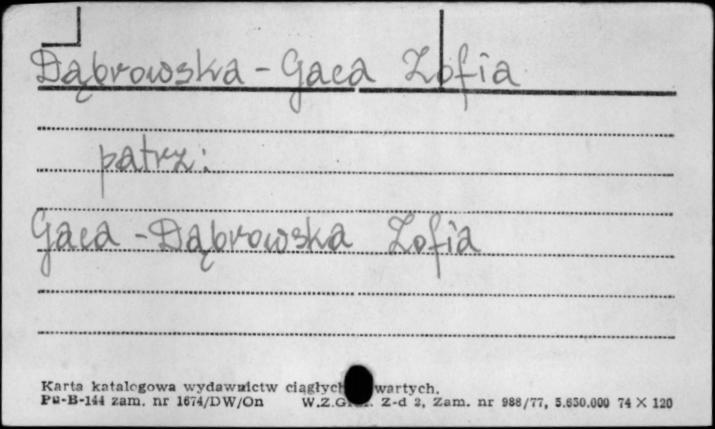 Dąbrowska - Gaca Zofia
patrz:
Gaca - Dąbrowska Zofia
Karta katalogowa wydawnictw ciągłych wartych.
Pu-B-144 zam. nr 1674/DW/On W.Z.Graf. Z-d 2, Zam. nr 988/77, 5.650.000 74 X 120